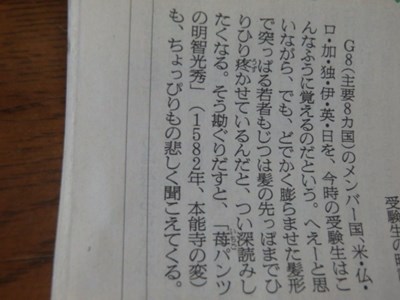 受験生の
G8(主要8カ国)のメンバー国 米・仏・
ロ・加・独・伊・英・日を、今時の受験生はこ
んなふうに覚えるのだという。へえーと思
いながら、でも、どでかく膨らませた髪形
で突っぱる若者もじつは髪の先っぽまでひ
りひり疼かせているんだと、つい深読みし
たくなる。そう勘ぐりだすと、「苺パンツ
の明智光秀」(1582年、本能寺の変)
も、ちょっぴりもの悲しく聞こえてくる。